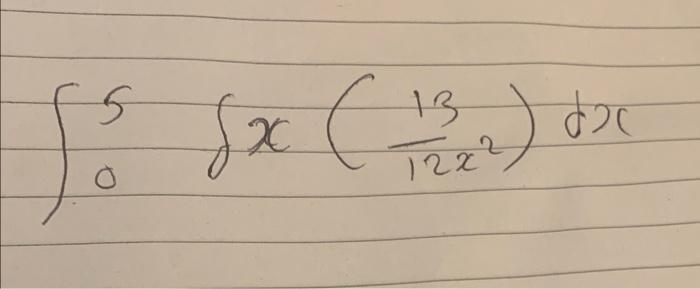 ∫₀⁵ ∫x (13/12x²) dx